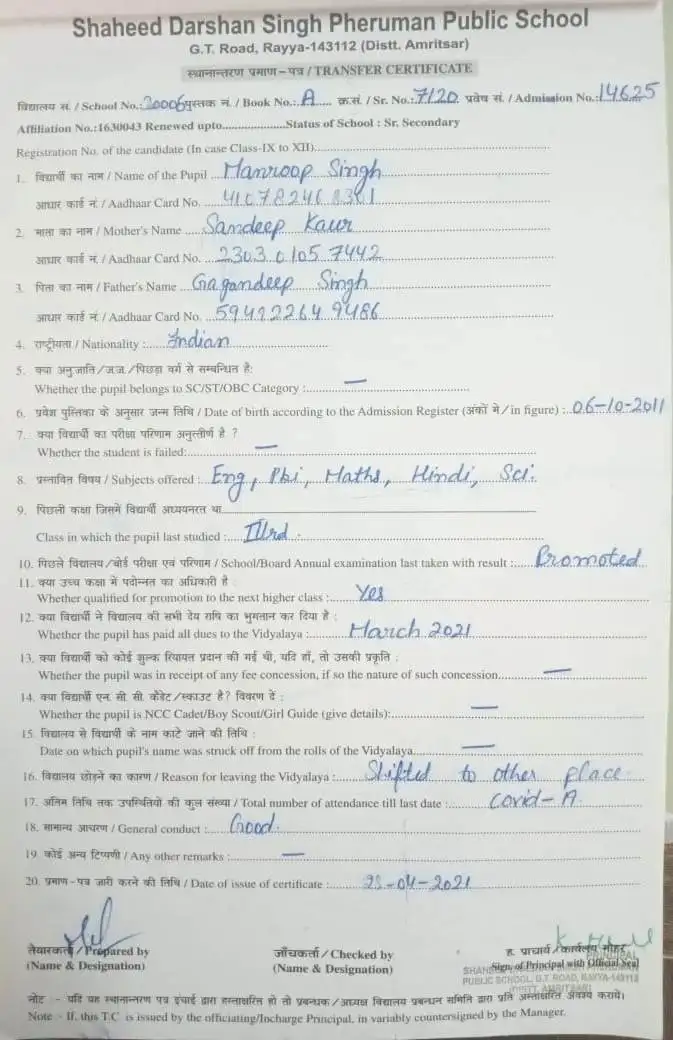 Shaheed Darshan Singh Pheruman Public School
G.T. Road, Rayya-143112 (Distt. Amritsar)
स्थानान्तरण प्रमाण-पत्र / TRANSFER CERTIFICATE
विद्यालय सं. / School No.: 20006 पुस्तक नं. / Book No.: A क्र.सं. / Sr. No.: 7120 प्रवेष सं. / Admission No.: 14625
Affiliation No.:1630043 Renewed upto..................Status of School : Sr. Secondary
Registration No. of the candidate (In case Class-IX to XII)
1. विद्यार्थी का नाम / Name of the Pupil Manroop Singh
आधार कार्ड नं. / Aadhaar Card No.
2. माता का नाम / Mother's Name Sandeep Kaur
आधार कार्ड नं. / Aadhaar Card No. 2303 0105 7442
3. पिता का नाम / Father's Name Gagandeep Singh
आधार कार्ड नं. / Aadhaar Card No.
4. राष्ट्रीयता / Nationality : Indian
5. क्या अनुजाति/ज.ज./पिछड़ा वर्ग से सम्बन्धित है:
Whether the pupil belongs to SC/ST/OBC Category : —
6. प्रवेश पुस्तिका के अनुसार जन्म तिथि / Date of birth according to the Admission Register (अंकों में/in figure) : 06-10-2011
7. क्या विद्यार्थी का परीक्षा परिणाम अनुत्तीर्ण है ?
Whether the student is failed: —
8. प्रस्तावित विषय / Subjects offered : Eng, Pbi, Maths, Hindi, Sci.
9. पिछली कक्षा जिसमें विद्यार्थी अध्ययनरत था
Class in which the pupil last studied : IIIrd.
10. पिछले विद्यालय/बोर्ड परीक्षा एवं परिणाम / School/Board Annual examination last taken with result : Promoted
11. क्या उच्च कक्षा में पदोन्नत का अधिकारी है :
Whether qualified for promotion to the next higher class : Yes
12. क्या विद्यार्थी ने विद्यालय की सभी देय राशि का भुगतान कर दिया है :
Whether the pupil has paid all dues to the Vidyalaya : March 2021
13. क्या विद्यार्थी को कोई शुल्क रियायत प्रदान की गई थी, यदि हाँ, तो उसकी प्रकृति :
Whether the pupil was in receipt of any fee concession, if so the nature of such concession —
14. क्या विद्यार्थी एन. सी. सी. कैडेट/स्काउट है? विवरण दें :
Whether the pupil is NCC Cadet/Boy Scout/Girl Guide (give details): —
15. विद्यालय से विद्यार्थी के नाम काटे जाने की तिथि :
Date on which pupil's name was struck off from the rolls of the Vidyalaya —
16. विद्यालय छोड़ने का कारण / Reason for leaving the Vidyalaya : Shifted to other place
17. अंतिम तिथि तक उपस्थितियों की कुल संख्या / Total number of attendance till last date : Covid-19.
18. सामान्य आचरण / General conduct : Good.
19. कोई अन्य टिप्पणी / Any other remarks : —
20. प्रमाण-पत्र जारी करने की तिथि / Date of issue of certificate : 28-04-2021
तैयारकर्ता / Prepared by
(Name & Designation)
जाँचकर्ता / Checked by
(Name & Designation)
ह. प्राचार्य / कार्यालय मोहर
PRINCIPAL
Sign of Principal with Official Seal
PUBLIC SCHOOL, G.T. ROAD, RAYYA-143112
(DISTT. AMRITSAR)
नोट :- यदि यह स्थानान्तरण पत्र इंचार्ज द्वारा हस्ताक्षरित हो तो प्रबन्धक/अध्यक्ष विद्यालय प्रबन्धन समिति द्वारा प्रति अवश्य करायें।
Note :- If, this T.C is issued by the officiating/Incharge Principal, in variably countersigned by the Manager.